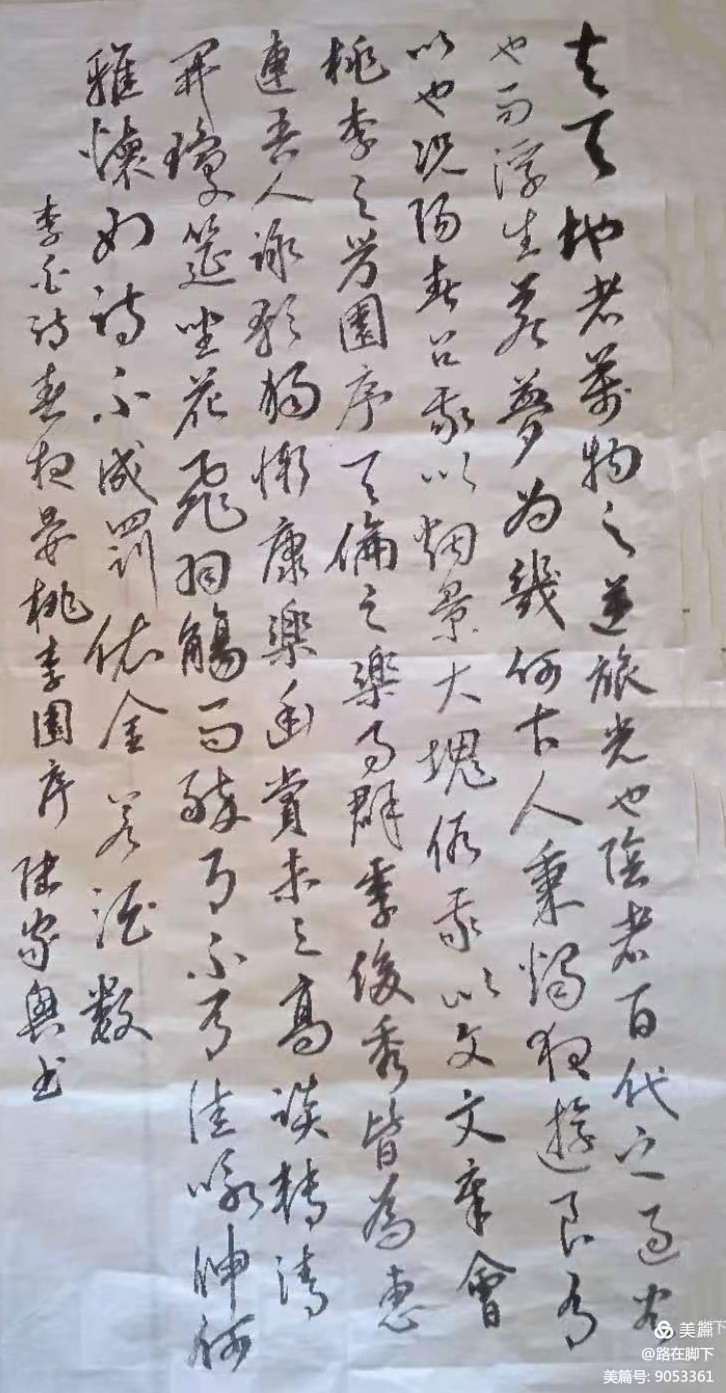 夫天地者萬物之逆旅光也陰者百代之過客
也而浮生若夢為幾何古人秉燭夜遊良有
以也況陽春召我以烟景大塊假我以文文章會
桃李之芳園序天倫之樂事群季俊秀皆為惠
連吾人詠歌獨慚康樂幽賞未已高談轉清
開瓊筵坐花飛羽觴而醉月不有佳咏伸何
雅懷如詩不成罰依金谷酒數
李白詩春夜宴桃李園序 家興书
美篇
@路在脚下
美篇号: 9053361